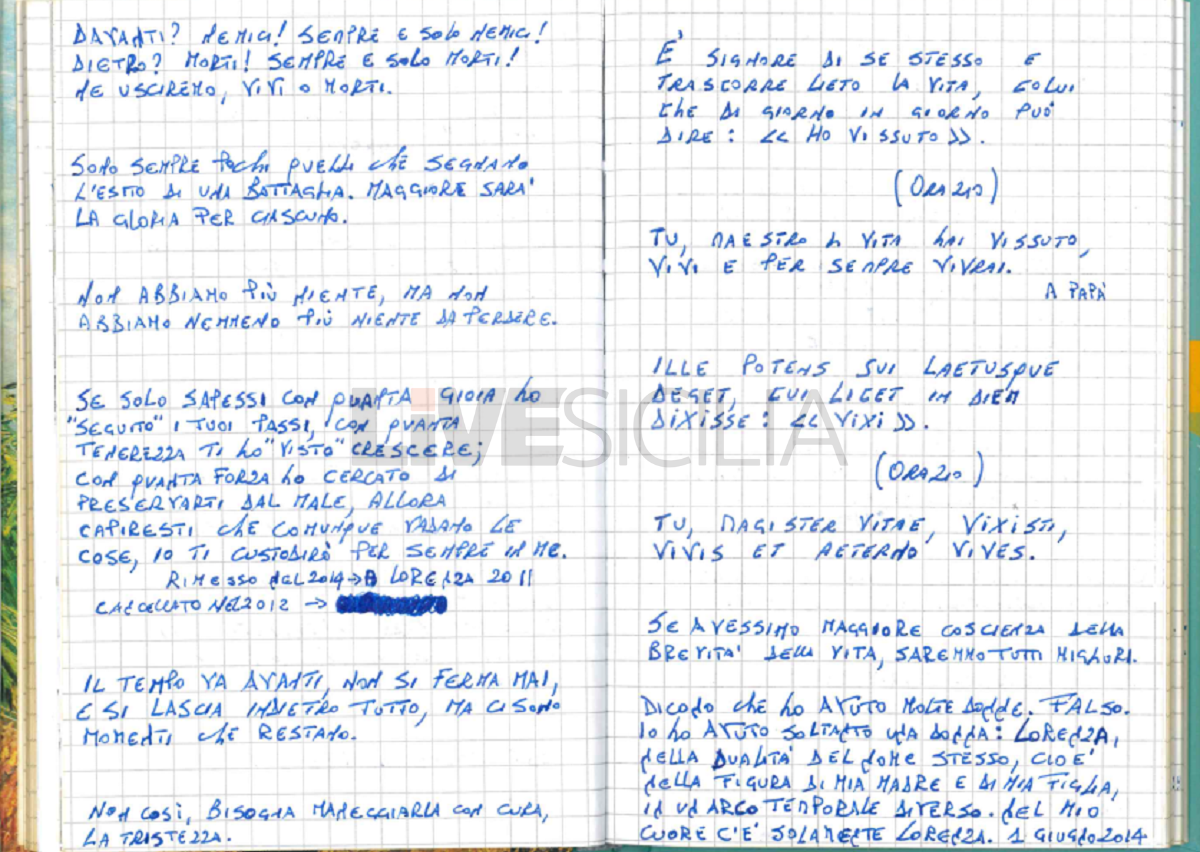 DAVANTI? NEMICI! SEMPRE E SOLO NEMICI!
DIETRO? MORTI! SEMPRE E SOLO MORTI!
NE USCIREMO, VIVI O MORTI.
SONO SEMPRE POCHI QUELLI CHE SEGNANO
L'ESITO DI UNA BATTAGLIA. MAGGIORE SARA'
LA GLORIA PER CIASCUNO.
NON ABBIAMO PIÙ NIENTE, MA NON
ABBIAMO NEMMENO PIÙ NIENTE DA PERDERE.
SE SOLO SAPESSI CON QUANTA GIOIA HO
"SEGUITO" I TUOI PASSI, CON QUANTA
TENEREZZA TI HO "VISTO" CRESCERE;
CON QUANTA FORZA HO CERCATO DI
PRESERVARTI DAL MALE, ALLORA
CAPIRESTI CHE COMUNQUE VADANO LE
COSE, IO TI CUSTODIRÒ PER SEMPRE IN ME.
RIMESSO NEL 2014 → A LORENZA 2011
CANCELLATO NEL 2012 →
IL TEMPO VA AVANTI, NON SI FERMA MAI,
E SI LASCIA INDIETRO TUTTO, MA CI SONO
MOMENTI CHE RESTANO.
NON COSÌ, BISOGNA MANEGGIARLA CON CURA,
LA TRISTEZZA.
È SIGNORE DI SE STESSO E
TRASCORRE LIETO LA VITA, COLUI
CHE DI GIORNO IN GIORNO PUÒ
DIRE: << HO VISSUTO >>.
(ORAZIO)
TU, MAESTRO DI VITA HAI VISSUTO,
VIVI E PER SEMPRE VIVRAI.
A PAPÀ
ILLE POTENS SUI LAETUSQUE
DEGET, CUI LICET IN DIEM
DIXISSE: << VIXI >>.
(ORAZIO)
TU, MAGISTER VITAE, VIXISTI,
VIVIS ET AETERNO VIVES.
SE AVESSIMO MAGGIORE COSCIENZA DELLA
BREVITA' DELLA VITA, SAREMMO TUTTI MIGLIORI.
DICONO CHE HO AVUTO MOLTE DONNE. FALSO.
IO HO AVUTO SOLTANTO UNA DONNA: LORENZA,
NELLA DUALITÀ DEL NOME STESSO, CIOE'
NELLA FIGURA DI MIA MADRE E DI MIA FIGLIA,
IN UN ARCO TEMPORALE DIVERSO. NEL MIO
CUORE C'E' SOLAMENTE LORENZA. 1 GIUGNO 2014
LIVESICILIA